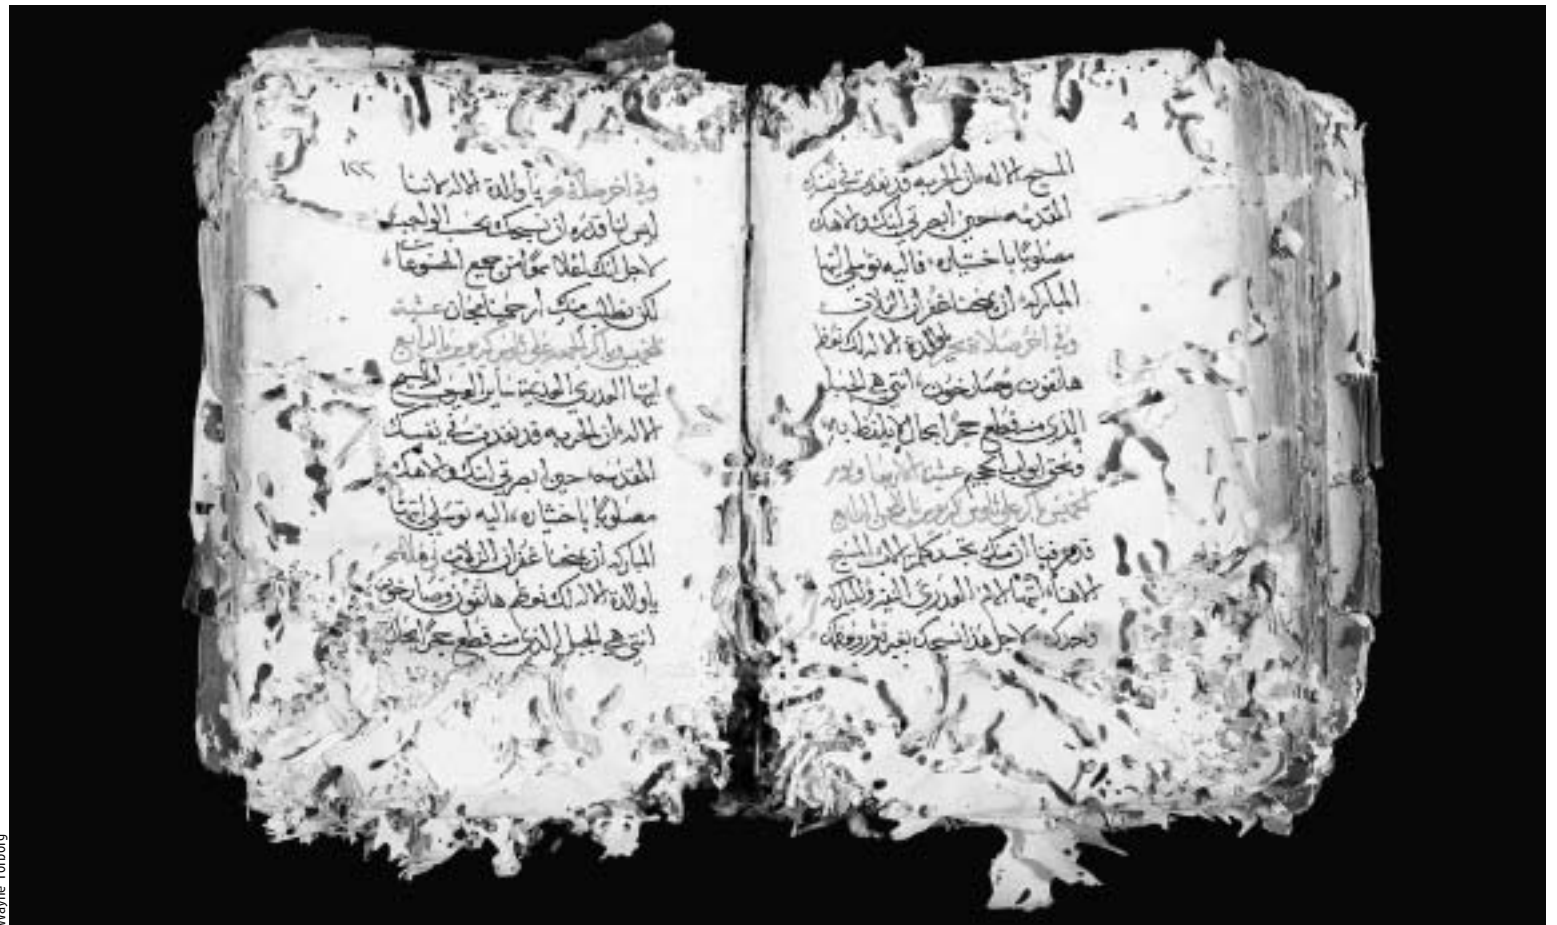 المسيح الاله ان الحربه قد نفدت في نفسك
المقدسه حين ابصرتي ابنك والاهك
مصلوبًا باختياره، فاليه توسلي ايتها
المباركه ان يمنحنا غفران الزلات
وفي اخر صلاة والدة الاله لك
هاتفون وصارخون، انتي هي الجبل
الذي منه قطع حجرًا بحال لا يلفظ به
وسحق ابواب الجحيم عشية الاربعا وباكر
الخميس علي
قد عرفنا ان منك تجسد كلمة الاب المسيح
الاهنا، ايتها الام العذري النقيه والمباركه
وحدك، لاجل هذا نسبحك بغير فتور ونعظمك
١٢٢
وفي اخر صلاة يا والدة الاله لاننا
ليس لنا قدره ان نسبحك بحسب الواجب
لاجل انك اعلا سموًا من جميع المصنوعات
لكن نطلب منك ارحمينا مجان عشية
الخميس وباكر الجمعه علي الرابع
ايتها العذري العديمة ساير العيوب المسيح
الاله ان الحربه قد نفدت في نفسك
المقدسه حين ابصرتي ابنك والاهك
مصلوبًا باختياره، اليه توسلي ايتها
المباركه ان يمنحنا غفران الزلات
يا والدة الاله لك هاتفون وصارخون
انتي هي الجبل الذي منه قطع حجرًا بحال
Wayne Torborg